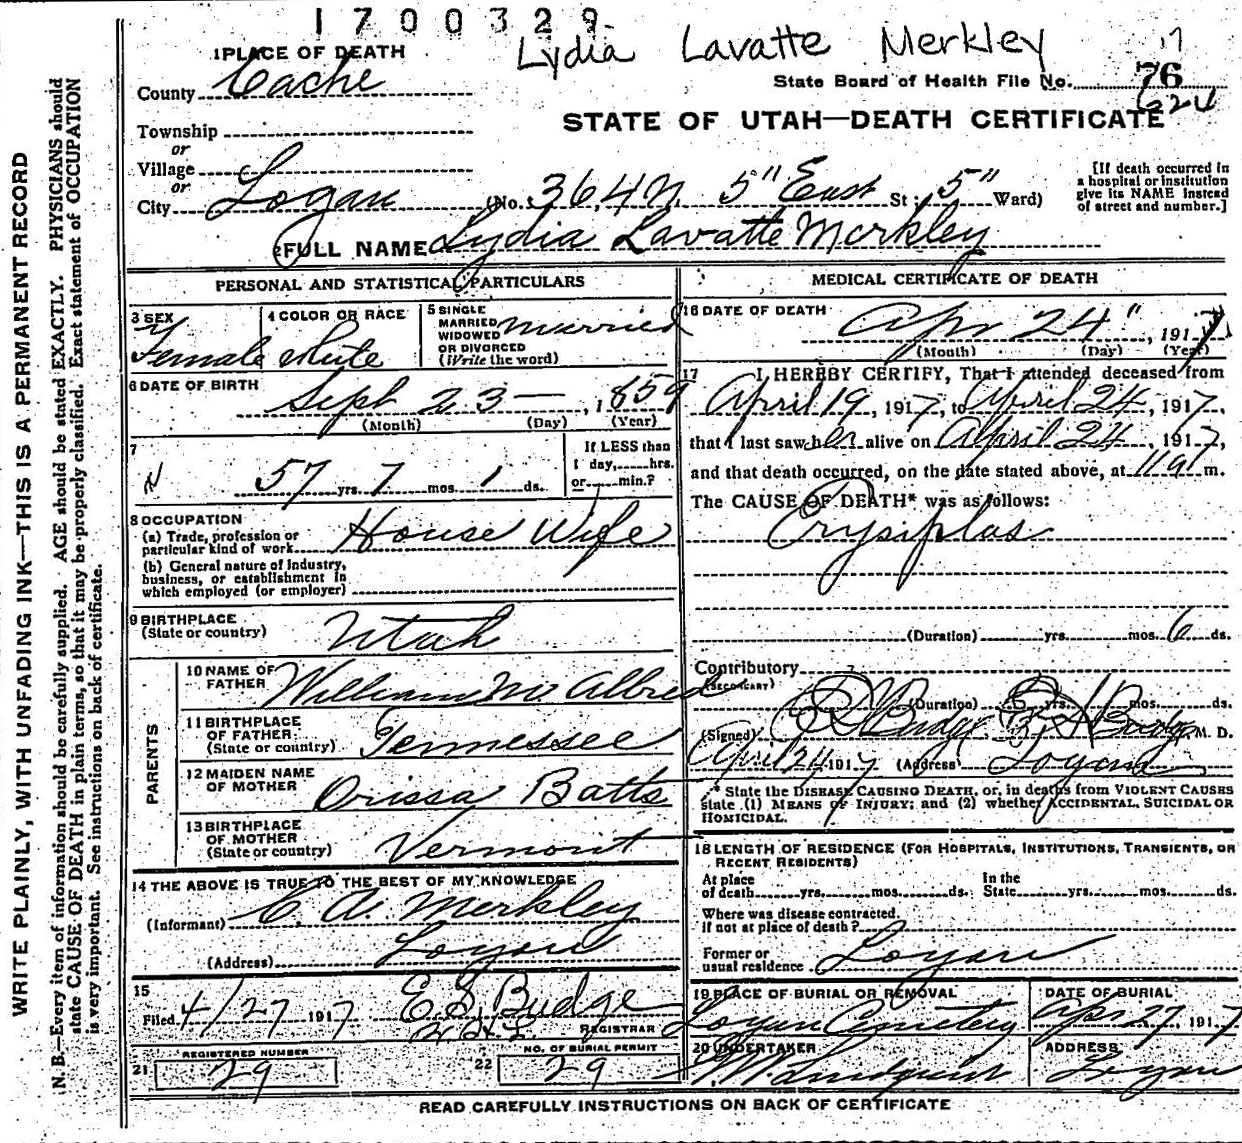 1700329
Lydia Lavatte Merkley
17
1 PLACE OF DEATH
County Cache
State Board of Health File No. 76
624
Township
STATE OF UTAH—DEATH CERTIFICATE
or
Village
or
City Logan (No. 364 N. 5" East St; 5" Ward)
[If death occurred in
a hospital or institution
give its NAME instead
of street and number.]
2 FULL NAME Lydia Lavatte Merkley
PERSONAL AND STATISTICAL PARTICULARS
3 SEX
Female
4 COLOR OR RACE
White
5 SINGLE
MARRIED
WIDOWED
OR DIVORCED
(Write the word)
Married
6 DATE OF BIRTH
Sept 23 — , 1859
(Month) (Day) (Year)
7
57 yrs. 7 mos. 1 ds.
If LESS than
1 day, hrs.
or min.?
8 OCCUPATION
(a) Trade, profession or
particular kind of work House Wife
(b) General nature of industry,
business, or establishment in
which employed (or employer)
9 BIRTHPLACE
(State or country) Utah
PARENTS
10 NAME OF
FATHER William M Allred
11 BIRTHPLACE
OF FATHER
(State or country) Tennessee
12 MAIDEN NAME
OF MOTHER Orissa Batts
13 BIRTHPLACE
OF MOTHER
(State or country) Vermont
14 THE ABOVE IS TRUE TO THE BEST OF MY KNOWLEDGE
(Informant) C. A. Merkley
(Address) Logan
15
Filed 4/27 1917 E. S. Budge
REGISTRAR
21 REGISTERED NUMBER
29
22 NO. OF BURIAL PERMIT
29
MEDICAL CERTIFICATE OF DEATH
16 DATE OF DEATH
Apr 24", 1917
(Month) (Day) (Year)
17 I HEREBY CERTIFY, That I attended deceased from
April 19, 1917, to April 24, 1917,
that I last saw her alive on April 24, 1917,
and that death occurred, on the date stated above, at 11 a m.
The CAUSE OF DEATH* was as follows:
Erysiplas
(Duration) yrs. mos. 6 ds.
Contributory
(SECONDARY)
(Duration) yrs. mos. ds.
(Signed) Budge Budge M. D.
April 24 1917 (Address) Logan
* State the DISEASE CAUSING DEATH, or, in deaths from VIOLENT CAUSES
state (1) MEANS OF INJURY; and (2) whether ACCIDENTAL, SUICIDAL OR
HOMICIDAL.
18 LENGTH OF RESIDENCE (FOR HOSPITALS, INSTITUTIONS, TRANSIENTS, OR
RECENT RESIDENTS)
At place
of death yrs. mos. ds.
In the
State yrs. mos. ds.
Where was disease contracted,
if not at place of death?
Former or
usual residence Logan
19 PLACE OF BURIAL OR REMOVAL
Logan Cemetery
DATE OF BURIAL
Apr 27, 1917
20 UNDERTAKER
Lindquist
ADDRESS
Logan
READ CAREFULLY INSTRUCTIONS ON BACK OF CERTIFICATE
WRITE PLAINLY, WITH UNFADING INK—THIS IS A PERMANENT RECORD
N. B.—Every item of information should be carefully supplied. AGE should be stated EXACTLY. PHYSICIANS should
state CAUSE OF DEATH in plain terms, so that it may be properly classified. Exact statement of OCCUPATION
is very important. See instructions on back of certificate.